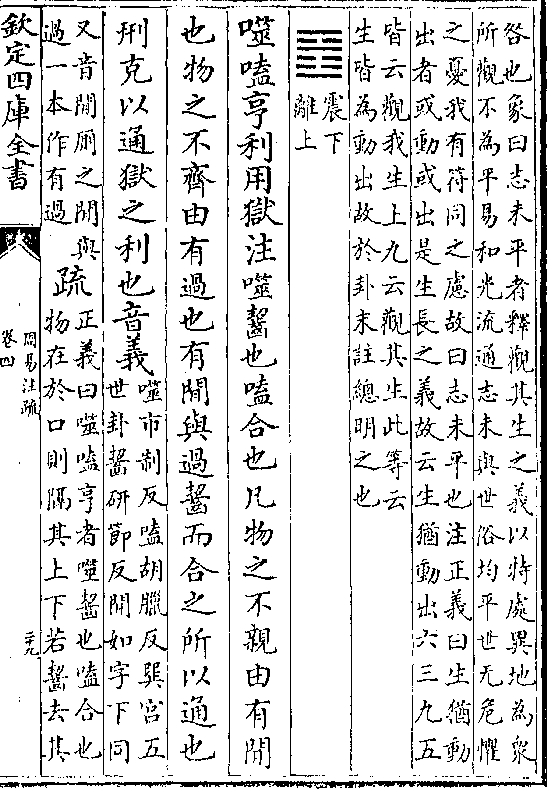 咎也象曰志未平者釋觀其生之義以特處異地為衆
所觀不為平易和光流通志未與世俗均平世无危懼
之憂我有符同之慮故曰志未平也注正義曰生猶動
出者或動或出是生長之義故云生猶動出六三九五
皆云觀我生上九云觀其生此等云
生皆為動出故於卦末註總明之也
震下
離上
噬嗑亨利用獄注噬齧也嗑合也凡物之不親由有間
也物之不齊由有過也有間與過齧而合之所以通也
刑克以通獄之利也音義
噬市制反嗑胡臘反巽宫五
世卦齧研節反間如字下同
又音間厠之間與
過一本作有過
疏
正義曰噬嗑亨者噬齧也嗑合也
物在於口則隔其上下若齧去其
欽定四庫全書
周易注疏
卷四
二九